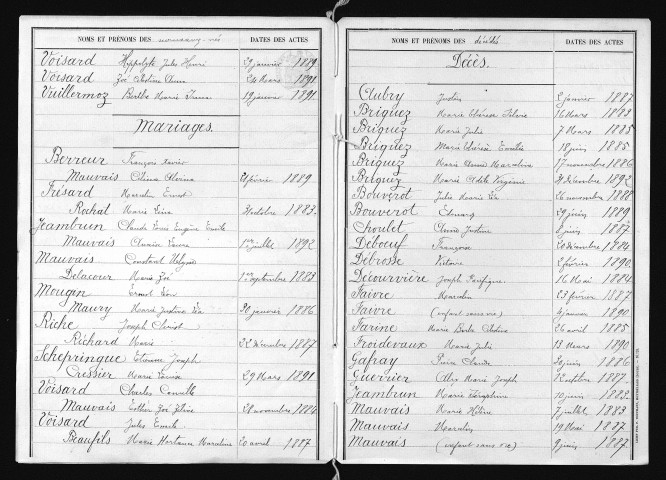 NOMS ET PRÉNOMS DES nouveaux-nés DATES DES ACTES
Voisard Hippolyte Jules Henri 29 janvier 1889
Voisard Zoé 24 Mars 1891
Vuillermoz Berthe Marie Irma 19 janvier 1891
Mariages.
Berreur François Xavier
Mauvais Célina 21 février 1889
Frésard Marcelin Ernest
Rochat Marie octobre 1883.
Jeambrun Claude Louis Eugène Emile
Mauvais 1er juillet 1892
Mauvais Constant
Delacour Marie Zoé 1er septembre 1883
Mougin Ernest
Maury Marie Justine 20 janvier 1886
Riche Joseph
Richard Marie 22 décembre 1887
Schepringue Etienne Joseph
Cressier Marie Louise 29 Mars 1891
Voisard Charles Camille
Mauvais Esther Zoé 28 novembre 1884
Voisard Jules Emile
Beaufils Marie Hortense Marceline 20 avril 1887
NOMS ET PRÉNOMS DES décédés DATES DES ACTES
Décès.
Aubry Justin 2 janvier 1887
Briquez Marie Thérèse 16 Mars 1883
Briquez Marie Julie 7 Mars 1885
Briquez Marie Thérèse 18 juin 1885
Briquez Marie 17 novembre 1886
Briquez Marie Adèle Virginie 31 décembre 1892
Bouverot Jules Marie 26 novembre 1888
Bouverot Edouard 29 juin 1889
Choulet Justine 6 juin 1887
Deboeuf Françoise 20 décembre 1884
Debrosse Victoire 2 février 1890
Décourvière Joseph 16 Mai 1884
Faivre Marcelin 23 février 1887
Faivre (enfant sans vie) 4 janvier 1890
Farine Marie 26 avril 1885
Froidevaux Marie Julie 13 Mars 1890
Gafray Claude 30 juin 1886
Guerrier Marie Joseph octobre 1887
Jeambrun Marie Séraphine 10 juin 1882
Mauvais Marie Hélène 7 juillet 1883
Mauvais Marcelin 19 Mai 1887
Mauvais (enfant sans vie) 9 juin 1887